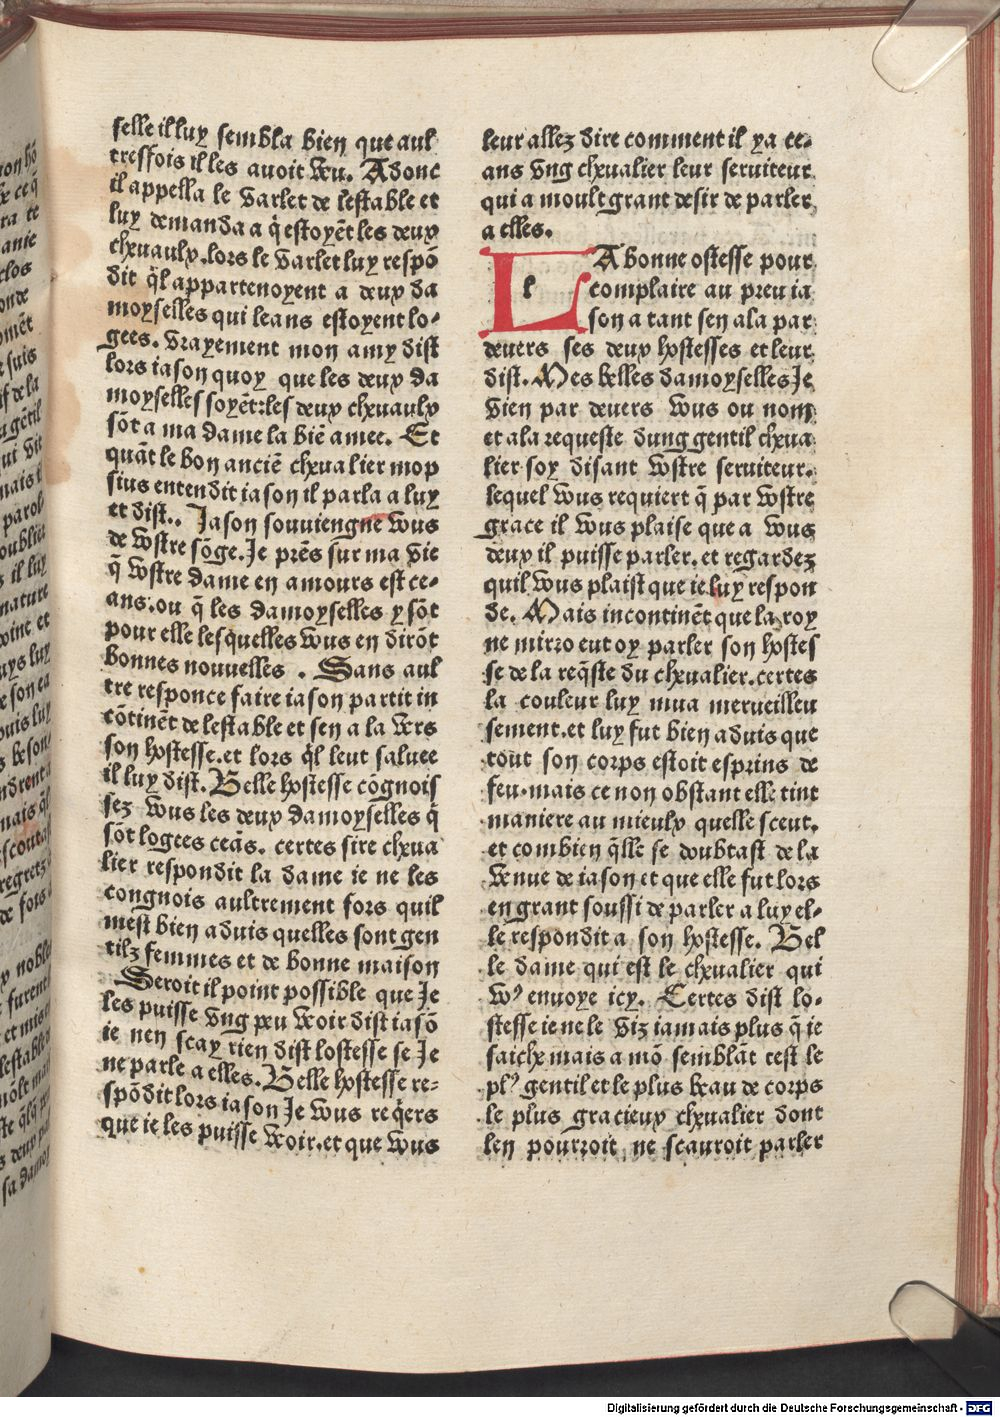 selle il luy sembla bien que aul
tresfois il les auoit veu. Adonc
il appella le varlet de lestable et
luy demanda a q̄ estoyēt les deux
cheuaulx. lors le varlet luy respō
dit q̄l appartenoyent a deux da
moyselles qui leans estoyent lo-
gees. vrayement mon amy dist
lors iason quoy que les deux da
moyselles soyēt: les deux cheuaulx
sōt a ma dame la biē amee. Et
quāt le bon anciē cheualier mop
sius entendit iason il parla a luy
et dist.. Iason souuiengne vous
de vostre sōge. Je prēs sur ma vie
q̄ vostre dame en amours est ce-
ans. ou q̄ les damoyselles y sōt
pour elle lesquelles vous en dirōt
bonnes nouuelles. Sans aul
tre responce faire iason partit in
cōtinēt de lestable et sen a la vers
son hostesse. et lors q̄l leut saluee
il luy dist. Belle hostesse cōgnois
sez vous les deux damoyselles q̄
sōt logees ceās. certes sire cheua
lier respondit la dame ie ne les
congnois aultrement fors quil
mest bien aduis quelles sont gen
tilz femmes et de bonne maison
Seroit il point possible que Je
les puisse vng peu veoir dist iasō
ie nen scay rien dist lostesse se Je
ne parle a elles. Belle hostesse re-
spōdit lors iason Je vous req̄ers
que ie les puisse veoir. et que vous
leur allez dire comment il ya ce-
ans vng cheualier leur seruiteur
qui a moult grant desir de parler
a elles.
LA bonne ostesse pour
complaire au preu ia
son a tant sen ala par
deuers ses deux hostesses et leur
dist. Mes belles damoyselles Je
vien par deuers vous ou nom
et ala requeste dung gentil cheua
lier soy disant vostre seruiteur.
lequel vous requiert q̄ par vostre
grace il vous plaise que a vous
deux il puisse parler. et regardez
quil vous plaist que ie luy respon
de. Mais incontinēt que la roy
ne mirro eut oy parler son hostes
se de la req̄ste du cheualier. certes
la couleur luy mua merueilleu
sement. et luy fut bien aduis que
tout son corps estoit esprins de
feu. mais ce non obstant elle tint
maniere au mieulx quelle sceut.
et combien q̄lle se doubtast de la
venue de iason et que elle fut lors
en grant soussi de parler a luy el-
le respondit a son hostesse. Bel
le dame qui est le cheualier qui
voꝰ enuoye icy. Certes dist lo-
stesse ie ne le viz iamais plus q̄ ie
saiche mais a mō semblāt cest le
plꝰ gentil et le plus beau de corps
le plus gracieux cheualier dont
len pourroit ne scauroit parler
Digitalisierung gefördert durch die Deutsche Forschungsgemeinschaft - DFG